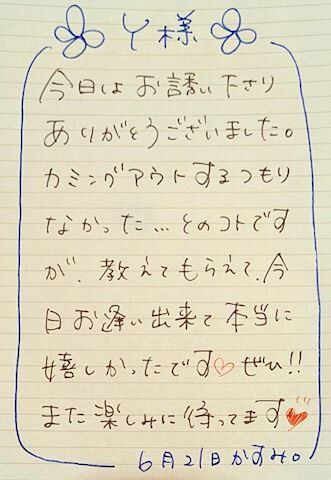 Y様
今日は お誘い下さり
ありがとうございました。
カミングアウトするつもり
なかった…とのコトです
が、教えてもらえて、今
日お逢い出来て本当に
嬉しかったです♡ ぜひ!!
また楽しみに待ってます♥
6月21日かすみ。